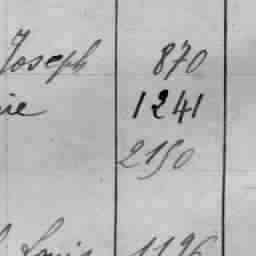 Joseph 870
ie 1241
2150
Louis 1196